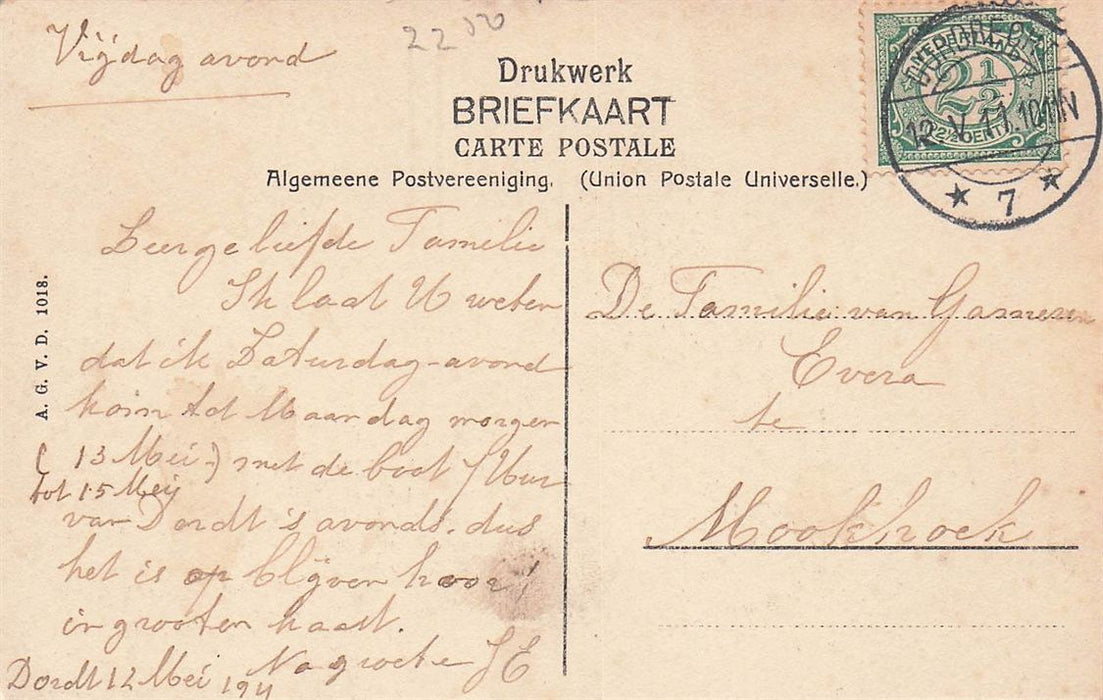 Vrijdag avond
2200
Drukwerk
BRIEFKAART
CARTE POSTALE
Algemeene Postvereeniging. (Union Postale Universelle.)
NEDERLAND
2½
2½ CENT
DORDRECHT
12 V 11. 10-11N
7
A. G. V. D. 1018.
Zeergeliefde Familie
Ik laat U weten
dat ik Zaturdag-avond
kom tot Maandag morgen
( 13 Mei-) met de boot 
tot 15 Mey
van Dordt 's avonds. dus
het is op blijven hoor!
in grooten haast.
Na groete
Dordt 12 Mei 1911
De Familie van Gameren
Evera
te
Mookhoek